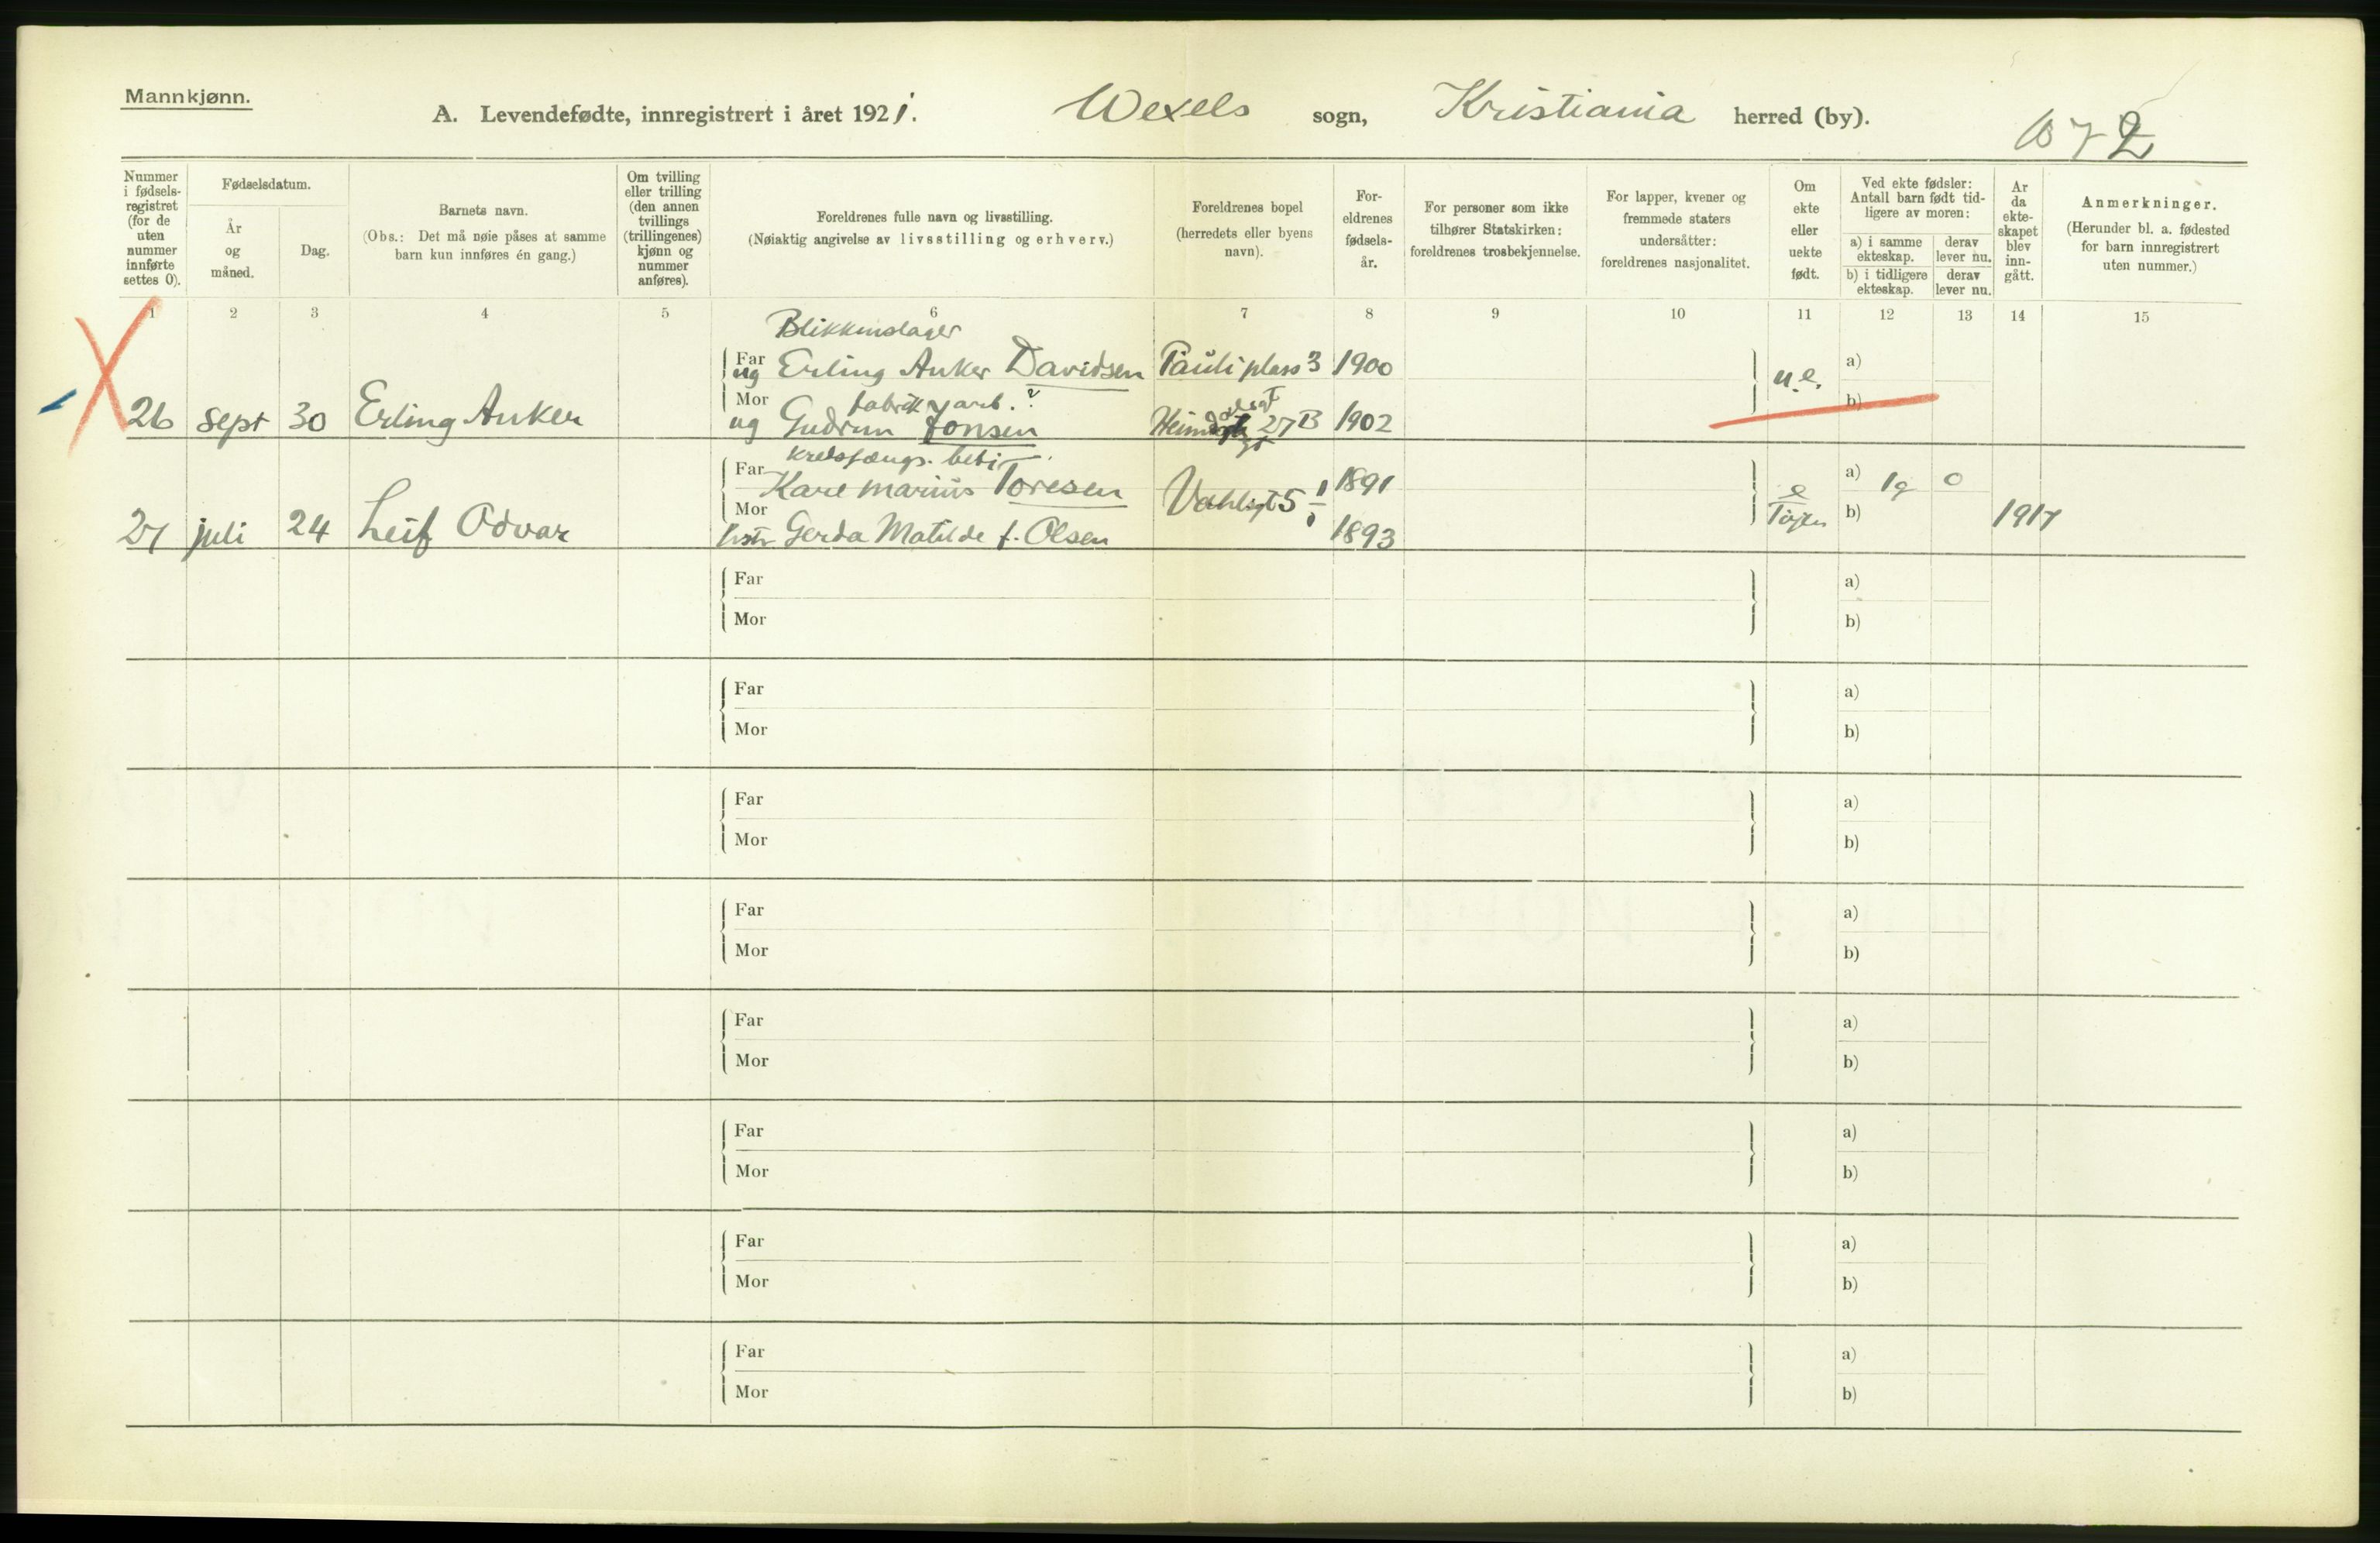 Mannkjønn.
A. Levendefødte, innregistrert i året 1921. Wexels sogn, Kristiania herred (by).
2
Nummer i fødselsregistret (for de uten nummer innførte settes 0).
Fødselsdatum.
År og måned.
Dag.
Barnets navn.
(Obs.: Det må nøie påses at samme barn kun innføres én gang.)
Om tvilling eller trilling (den annen tvillings (trillingenes) kjønn og nummer anføres).
Foreldrenes fulle navn og livsstilling.
(Nøiaktig angivelse av livsstilling og erhverv.)
Foreldrenes bopel (herredets eller byens navn).
Foreldrenes fødselsår.
For personer som ikke tilhører Statskirken: foreldrenes trosbekjennelse.
For lapper, kvener og fremmede staters undersåtter: foreldrenes nasjonalitet.
Om ekte eller uekte født.
Ved ekte fødsler: Antall barn født tidligere av moren:
a) i samme ekteskap. derav lever nu.
b) i tidligere ekteskap. derav lever nu.
År da ekteskapet blev inngått.
Anmerkninger.
(Herunder bl. a. fødested for barn innregistrert uten nummer.)
1 2 3 4 5 6 7 8 9 10 11 12 13 14 15
Blikkenslager
Far ug Erling Anker Davidsen Pauli plass 3 1900 u.e. a)
Mor fabrikkarb. ? b)
26 sept 30 Erling Anker ug Gudrun Jonsen 27 B 1902
Far
Kare Marius Toresen Vahlsgt 5 1891 e a) 1g 0
Mor Tøjen b) 1917
27 juli 24 Leif Odvar Gerda Matilde f. Olsen 1893
Far a)
Mor b)
Far a)
Mor b)
Far a)
Mor b)
Far a)
Mor b)
Far a)
Mor b)
Far a)
Mor b)
Far a)
Mor b)
Far a)
Mor b)